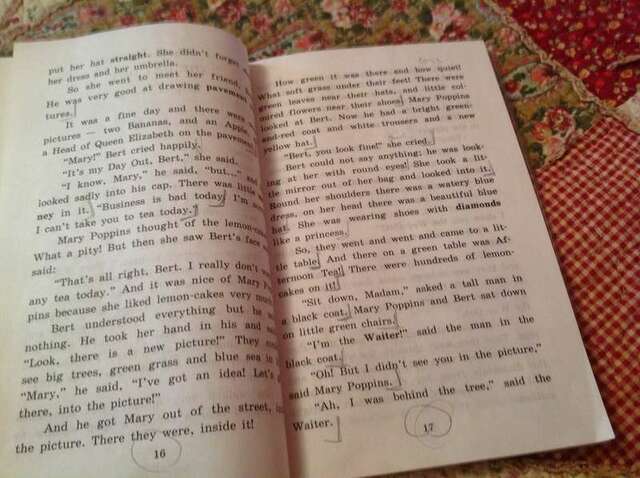 put her hat straight. She didn't forget
her dress and her umbrella.
So she went to meet her friend,
He was very good at drawing pavement
tures.
It was a fine day and there were
pictures — two Bananas, and an Apple,
a Head of Queen Elizabeth on the pavement
"Mary!" Bert cried happily.
"It's my Day Out, Bert," she said.
"I know, Mary," he said, "but..." and
looked sadly into his cap. There was little
ney in it. "Business is bad today. I'm
I can't take you to tea today."
Mary Poppins thought of the lemon-cakes
What a pity! But then she saw Bert's face
said:
"That's all right, Bert. I really don't
any tea today." And it was nice of Mary
pins because she liked lemon-cakes very
Bert understood everything but he
nothing. He took her hand in his and
"Look, there is a new picture!" They
see big trees, green grass and blue sea in
"Mary," he said, "I've got an idea! Let's
there, into the picture!"
And he got Mary out of the street,
the picture. There they were, inside it!
16
How green it was there and how quiet!
What soft grass under their feet! There were
green leaves near their hats, and little col-
oured flowers near their shoes. Mary Poppins
looked at Bert. Now he had a bright green-
and-red coat and white trousers and a new
yellow hat.
"Bert, you look fine!" she cried.
Bert could not say anything; he was look-
ing at her with round eyes! She took a lit-
tle mirror out of her bag and looked into it.
Round her shoulders there was a watery blue
dress, on her head there was a beautiful blue
hat. She was wearing shoes with diamonds
like a princess.
So, they went and went and came to a lit-
tle table. And there on a green table was Af-
ternoon Tea! There were hundreds of lemon-
cakes on it!
"Sit down, Madam," asked a tall man in
a black coat. Mary Poppins and Bert sat down
on little green chairs.
"I'm the Waiter!" said the man in the
black coat.
"Oh! But I didn't see you in the picture,"
said Mary Poppins.
"Ah, I was behind the tree," said the
Waiter.
17